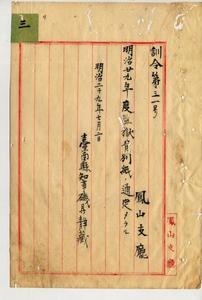 三
訓令第三一号
鳳山支廳
明治廿九年度監獄費別紙ノ通定メラル
明治二十九年七月二日
臺南縣知事磯貝靜藏
鳳山支廳